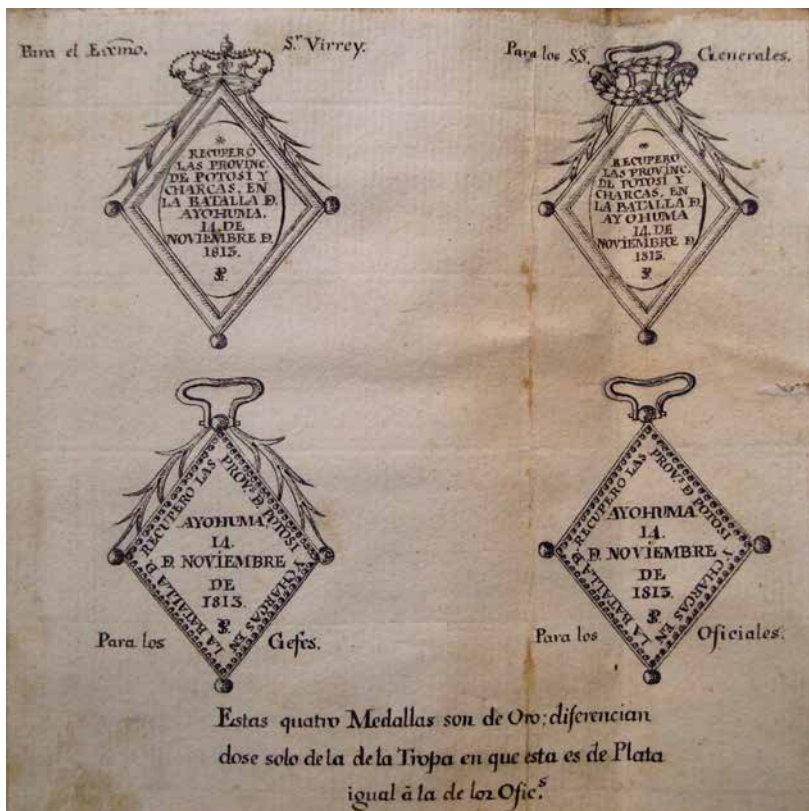 Para el Exmo. Sr. Virrey.
RECUPERÓ
LAS PROVINC.
DE POTOSI Y
CHARCAS, EN
LA BATALLA D.
AYOHUMA.
14. DE
NOVIEMBRE D.
1813.
Para los SS. Generales.
RECUPERO
LAS PROVINC.
DE POTOSI Y
CHARCAS, EN
LA BATALLA D.
AYOHUMA
14. DE
NOVIEMBRE D.
1813.
RECUPERO LAS PROVs. D. POTOSI Y CHARCAS EN LA BATALLA D.
AYOHUMA
14.
D. NOVIEMBRE
DE
1813.
Para los Gefes.
RECUPERO LAS PROVs. D. POTOSI Y CHARCAS EN LA BATALLA D.
AYOHUMA
14.
D. NOVIEMBRE
DE
1813.
Para los Oficiales.
Estas quatro Medallas son de Oro; diferencian
dose solo de la de la Tropa en que esta es de Plata
igual â la de los Ofics.